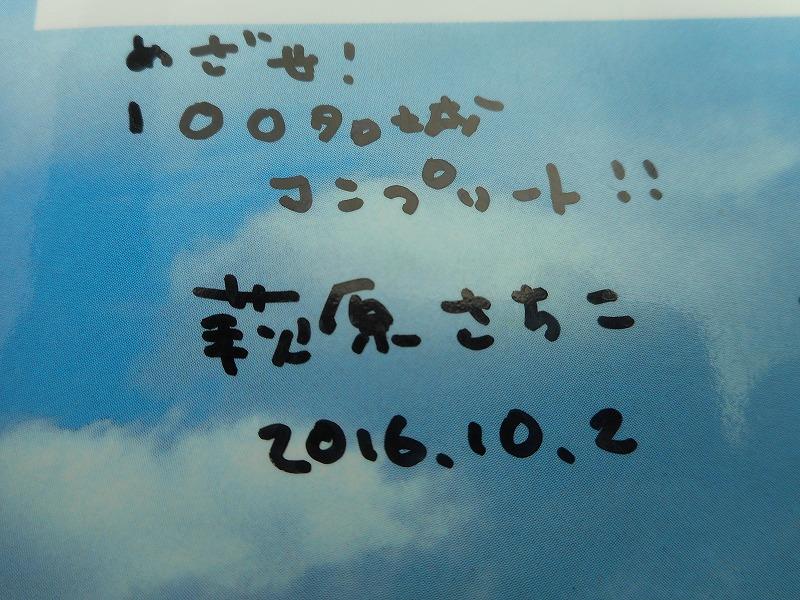 めざせ!
100名城
コンプリート!!
萩原さちこ
2016.10.2